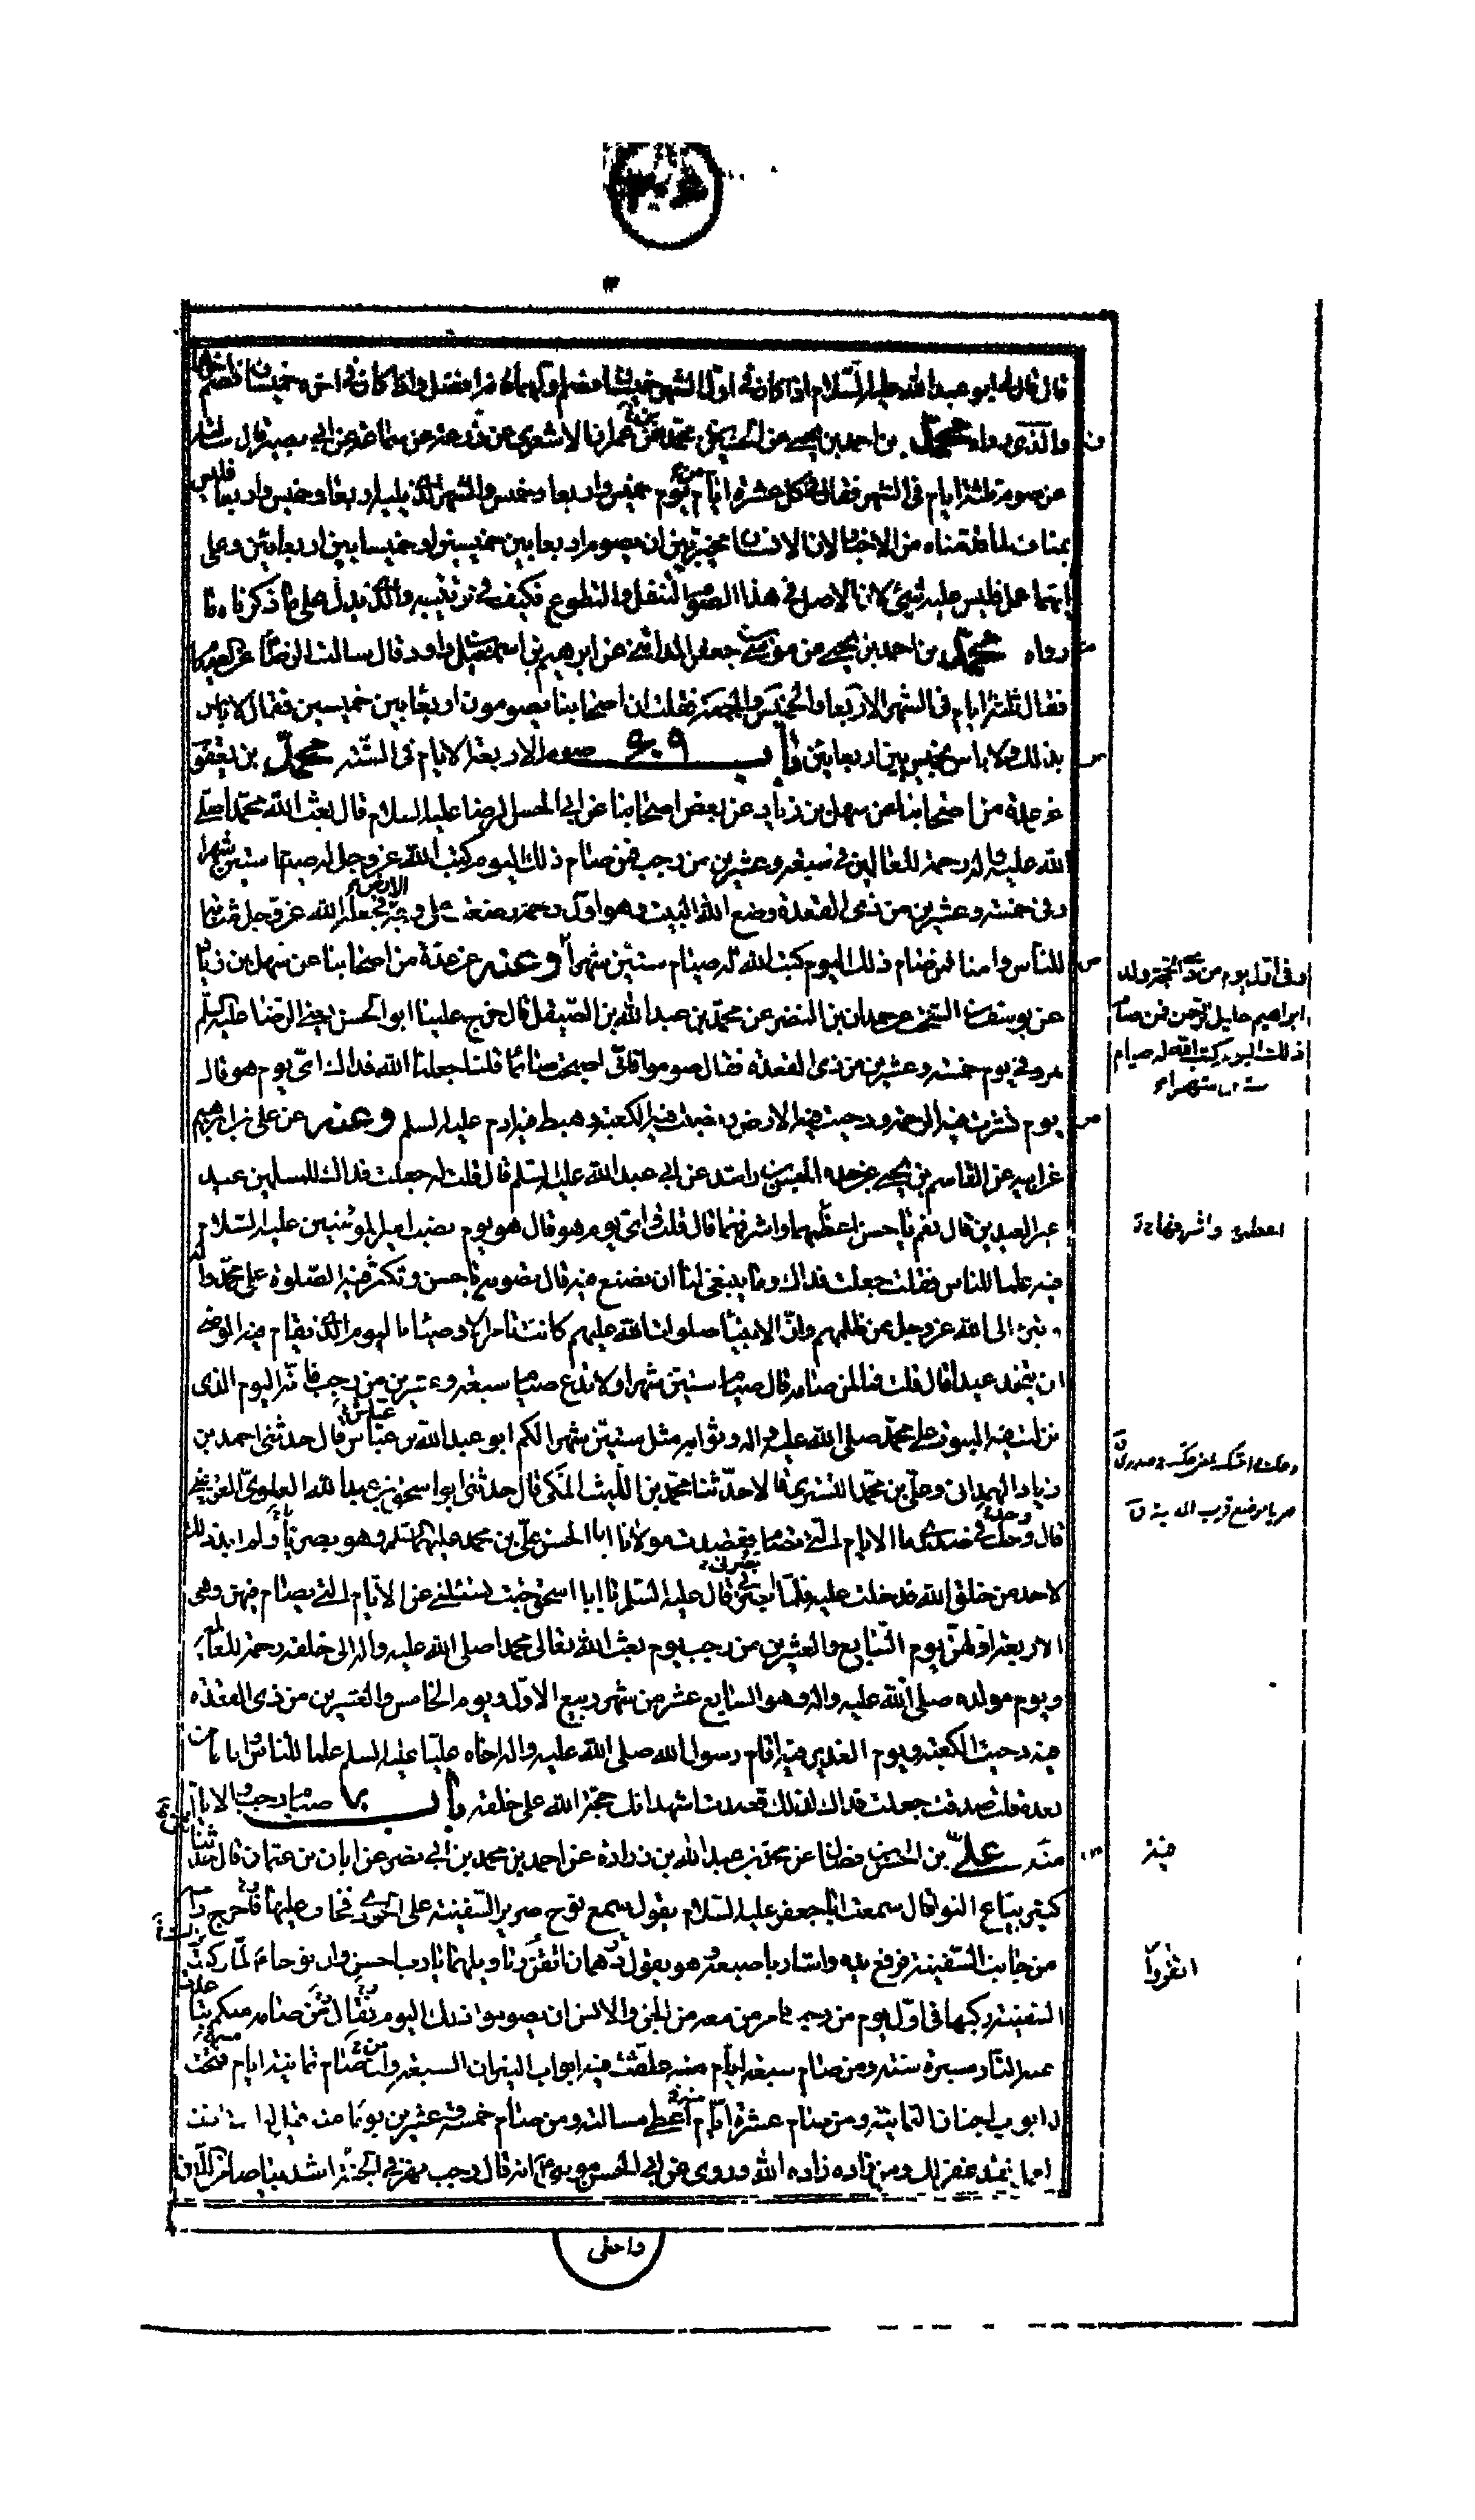 قال قال لى ابو عبدالله عليه السلام اذا كان فى اول الشهر خميسان فصم اولهما فانه افضل واذا كان فى اخره خميسان فصم اخرهما
والذى رواه محمد بن احمد بن يحيى عن محمد بن عمران الاشعرى عن زرعة عن سماعة عن ابى بصير قال سالته
عن صوم ثلثة ايام فى الشهر فقال فى كل عشرة ايام يوم خميس واربعا وخميس والشهر الذى يليه اربعا وخميس واربعا فليس
بمناف لما قدمناه من الاخبار لان الانسان مخير بين ان يصوم اربعا بين خميسين او خميسا بين اربعائين وعلى
ايهما عمل فليس عليه شئ لان الاصل فى هذا الصوم التنفل والتطوع فكيف فى ترتيبه والذى يدل على ما ذكرناه ما
رواه محمد بن احمد بن يحيى عن موسى بن جعفر المدائنى عن ابرهيم بن اسمعيل بن داود قال سالت الرضا عن الصيام
فقال ثلثة ايام فى الشهر الاربعا والخميس والجمعة فقلت ان اصحابنا يصومون اربعا بين خميسين فقال لا باس
بذلك ولا باس بخميس بين اربعائين باب صوم الاربعة الايام فى السنة محمد بن يعقوب
عن عدة من اصحابنا عن سهل بن زياد عن بعض اصحابنا عن ابى الحسن الرضا عليه السلام قال بعث الله محمدا صلى
الله عليه واله رحمة للعالمين فى سبعة وعشرين من رجب فمن صام ذلك اليوم كتب الله عز وجل له صيام ستين شهرا
وفى خمسة وعشرين من ذى القعدة وضع الله البيت وهو اول رحمة وضعت على وجه الارض فجعله الله عز وجل مثابة
للناس وامنا فمن صام ذلك اليوم كتب الله له صيام ستين شهرا وعنه عن عدة من اصحابنا عن سهل بن زياد
عن يوسف بن السخت عن حمدان بن النضر عن محمد بن عبدالله بن الصيقل قال خرج علينا ابو الحسن يعنى الرضا عليه السلم
بمرو فى يوم خمسة وعشرين من ذى القعدة فقال صوموا فانى اصبحت صائما قلنا جعلنا الله فداك اى يوم هو قال
يوم نشرت فيه الرحمة ودحيت فيه الارض ونصبت فيه الكعبة وهبط فيه ادم عليه السلم وعنه عن على بن ابرهيم
عن ابيه عن القاسم بن يحيى عن جده الحسن بن راشد عن ابى عبد الله عليه السلم قال قلت له جعلت فداك للمسلمين عيد
غير العيدين قال نعم يا حسن اعظمهما واشرفهما قال قلت واى يوم هو قال هو يوم نصب امير المؤمنين عليه السلام
فيه علما للناس فقلت جعلت فداك وما ينبغى لنا ان نصنع فيه قال تصومه يا حسن وتكثر فيه الصلوة على محمد واله
وتبرئ الى الله عز وجل ممن ظلمهم وان الانبيا صلوات الله عليهم كانت تامر الاوصيا باليوم الذى يقام فيه الوصى
ان يتخذ عيدا قال قلت فما لمن صامه قال صيام ستين شهرا ولا تدع صيام سبعة وعشرين من رجب فانه اليوم الذى
نزلت فيه النبوة على محمد صلى الله عليه واله وثوابه مثل ستين شهرا لكم ابو عبدالله بن عياش قال حدثنى احمد بن
زياد الهمدانى وعلى بن محمد التسترى قالا حدثنا محمد بن الليث المكى قال حدثنى ابو اسحق بن عبدالله العلوى العريضى
قال وحك فى صدرى ما الايام التى تصام فقصدت مولانا ابا الحسن على بن محمد عليهما السلم وهو بصريا ولم ابد ذلك
لاحد من خلق الله فدخلت عليه فلما بصر بى قال عليه السلم يا ابا اسحق جئت تسئلنى عن الايام التى يصام فيهن وهى
الاربعة اولهن يوم السابع والعشرين من رجب يوم بعث الله تعالى محمدا صلى الله عليه واله الى خلقه رحمة للعالمين
ويوم مولده صلى الله عليه واله وهو السابع عشر من شهر ربيع الاول ويوم الخامس والعشرين من ذى القعدة
فيه دحيت الكعبة ويوم الغدير فيه اقام رسول الله صلى الله عليه واله اخاه عليا عليه السلم علما للناس واماما من
بعده قلت صدقت جعلت فداك لذلك قصدت اشهد انك حجة الله على خلقه باب صيام رجب والايام
منه على بن الحسن بن فضال عن محمد بن عبدالله بن زرارة عن احمد بن محمد بن ابى نصر عن ابان بن عثمان قال حدثنا
كثير بياع النوا قال سمعت ابا جعفر عليه السلام يقول سمع نوح صرير السفينة على الجودى فخاف عليها فاخرج راسه
من جانب السفينة فرفع يده واشار باصبعه وهو يقول رهمان اتقن وتاويلها يا رب احسن وان نوحا لما ركب
السفينة ركبها فى اول يوم من رجب فامر من معه من الجن والانس ان يصوموا ذلك اليوم فقال من صامه منكم تباعدت
عنه النار مسيرة سنة ومن صام سبعة ايام منه غلقت عنه ابواب النيران السبعة وان صام ثمانية ايام فتحت
له ابواب الجنان الثمانية ومن صام عشرة ايام اعطى مسالته ومن صام خمسة وعشرين يوما منه قيل له استانف
العمل فقد غفر لك ومن زاده زاده الله وروى عن ابى الحسن موسى انه قال رجب نهر فى الجنة اشد بياضا من اللبن
واحلى
وفى اول يوم من ذى الحجة ولد
ابراهيم خليل الرحمن فمن صام
ذلك اليوم كتب الله له صيام
ستين شهرا
اعظمهما واشرفهما
صريا موضع قرب المدينة
فيه